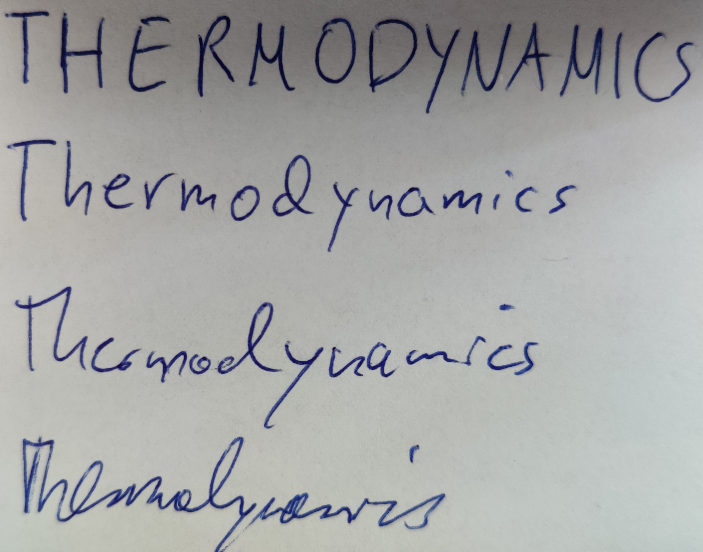 THERMODYNAMICS
Thermodynamics
Thermodynamics
Thermodynamics